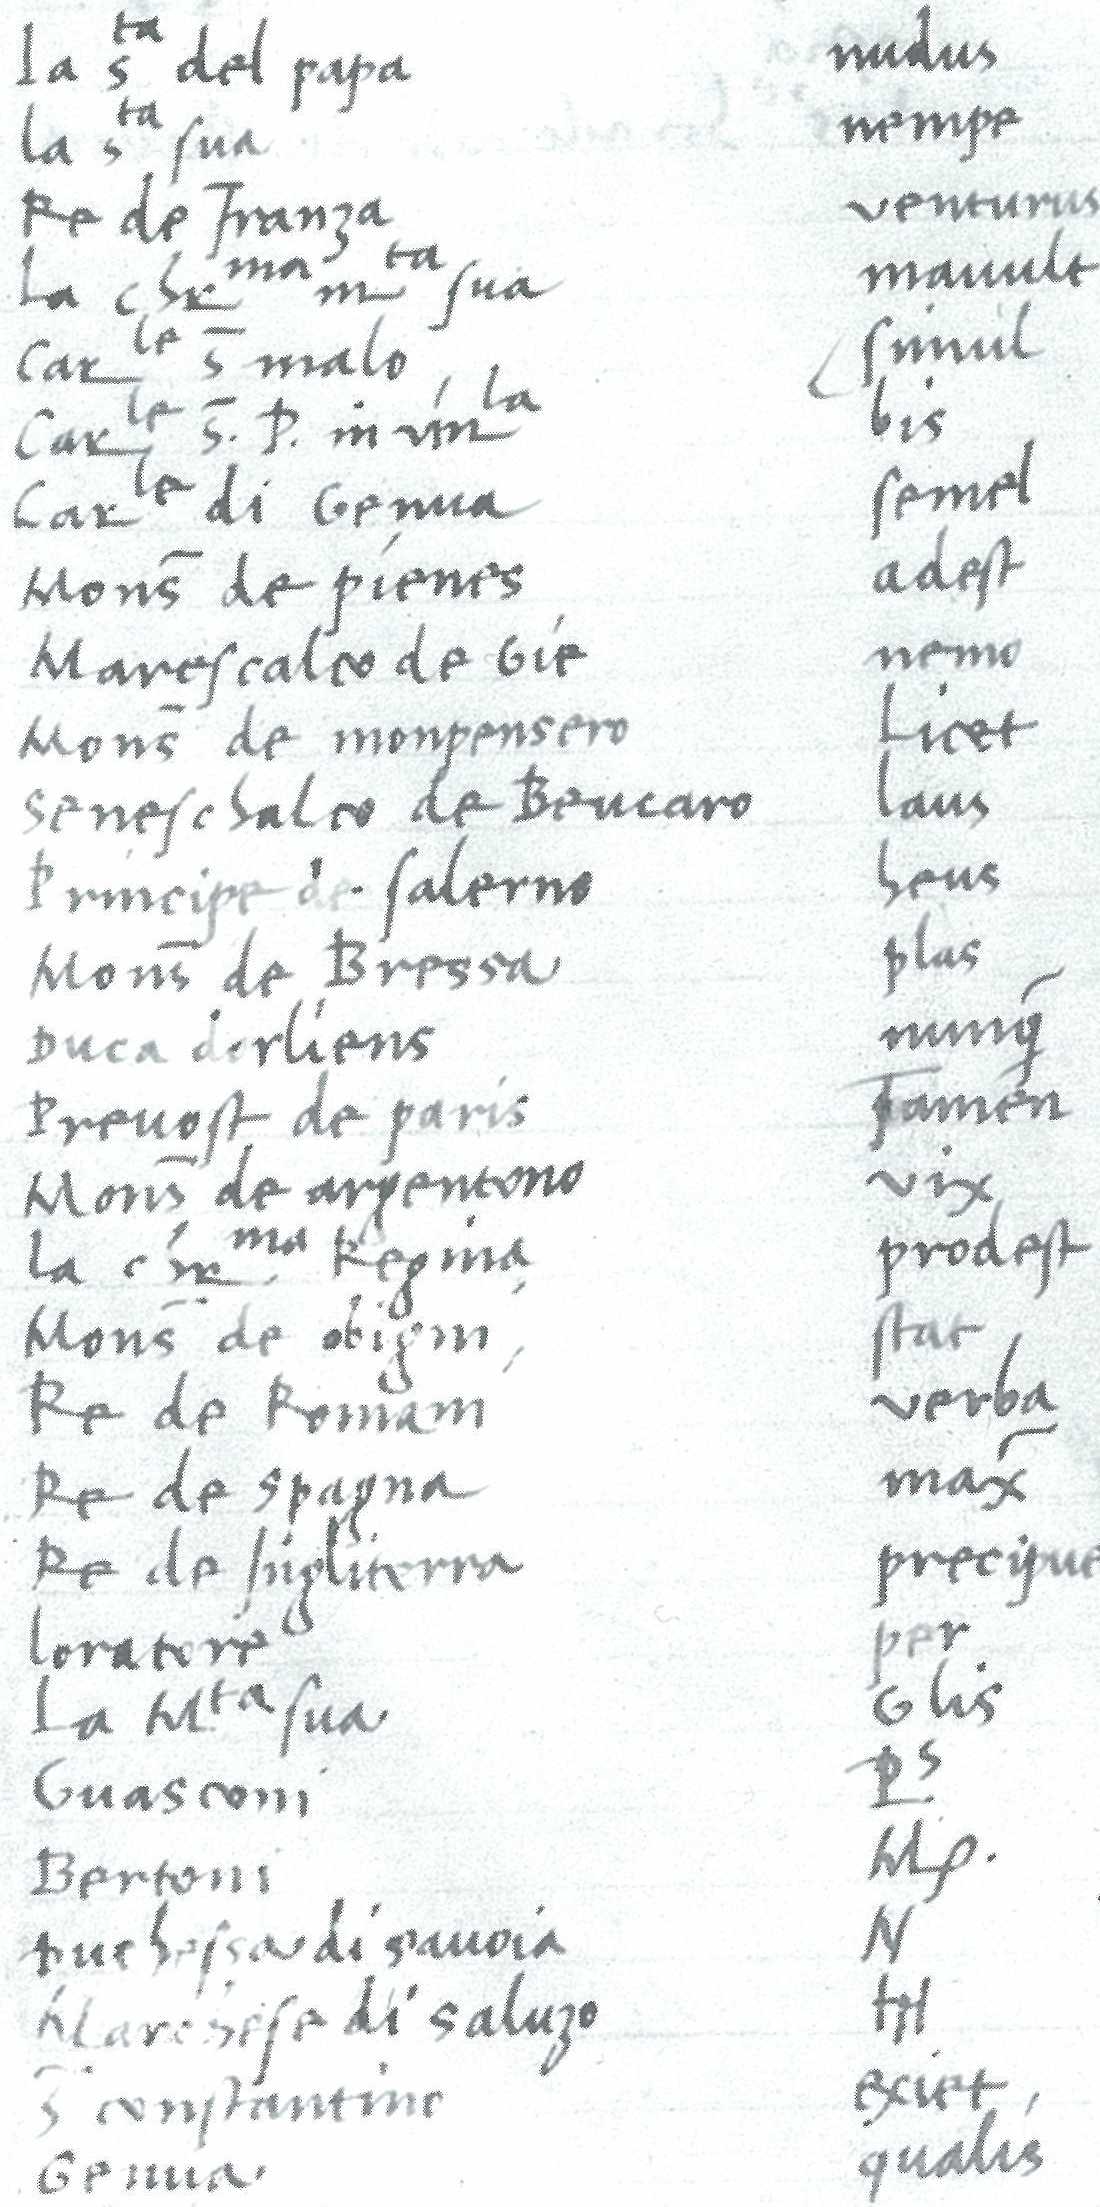 la s.ta del papa nudus
la s.ta sua nempe
Re de Franza venturus
La chr.ma m.ta sua mauult
Car.le s̄ malo simul
Car.le s̄. P. in vin.la bis
Car.le di Genua semel
Mons̄ de pienes adest
Marescalco de Gie nemo
Mons̄ de monpensero Licet
Seneschalco de Beucaro laus
Principe de salerno heus
Mons̄ de Bressa plas
Duca dorliens nunq̄
Preuost de paris Tamen
Mons̄ de argentono vix
La chr.ma Regina prodest
Mons̄ de obigni stat
Re de Romani verba
Re de spagna max̄
Re de higliterra precipue
loratore per
La M.ta sua Glis
Guasconi P.s
Bertoni
Duchessa di sauoia N
Marchese di saluzo
s̄ constantino exiet
Genua qualis